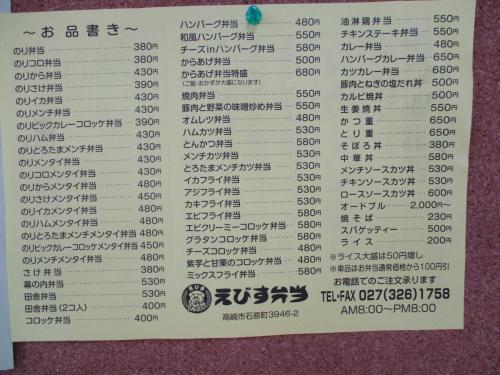 ～お品書き～
のり弁当 380円
のりコロ弁当 380円
のりから弁当 430円
のりさけ弁当 390円
のりイカ弁当 430円
のりメンチ弁当 430円
のりビックカレーコロッケ弁当 390円
のりハム弁当 430円
のりとろたまメンチ弁当 430円
のりメンタイ弁当 430円
のりコロメンタイ弁当 430円
のりからメンタイ弁当 480円
のりさけメンタイ弁当 450円
のりイカメンタイ弁当 480円
のりハムメンタイ弁当 480円
のりとろたまメンチメンタイ弁当 480円
のりビックカレーコロッケメンタイ弁当 450円
のりメンチメンタイ弁当 480円
さけ弁当 380円
幕の内弁当 530円
田舎弁当 530円
田舎弁当(2コ入) 400円
コロッケ弁当 400円
ハンバーグ弁当 480円
和風ハンバーグ弁当 550円
チーズinハンバーグ弁当 580円
からあげ弁当 500円
からあげ弁当特盛 680円
(ご飯・おかずが大盛になります)
焼肉弁当 550円
豚肉と野菜の味噌炒め弁当 550円
オムレツ弁当 480円
ハムカツ弁当 500円
とんかつ弁当 580円
メンチカツ弁当 530円
とろたまメンチカツ弁当 530円
イカフライ弁当 530円
アジフライ弁当 530円
カキフライ弁当 530円
エビフライ弁当 580円
エビクリーミーコロッケ弁当 580円
グラタンコロッケ弁当 530円
チーズコロッケ弁当 480円
紫芋と甘栗のコロッケ弁当 480円
ミックスフライ弁当 580円
えびす弁当
高崎市石原町3946-2
油淋鶏弁当 550円
チキンステーキ弁当 550円
カレー弁当 480円
ハンバーグカレー弁当 650円
カツカレー弁当 680円
豚肉とねぎの塩だれ丼 500円
カルビ焼丼 500円
生姜焼丼 550円
かつ重 650円
とり重 650円
そぼろ丼 380円
中華丼 580円
メンチソースカツ丼 530円
チキンソースカツ丼 530円
ロースソースカツ丼 600円
オードブル 2,000円～
焼そば 230円
スパゲッティー 500円
ライス 200円
※ライス大盛は50円増し
※単品はお弁当通常価格から100円引
お電話でのご注文承ります
TEL・FAX 027(326)1758
AM8:00～PM8:00